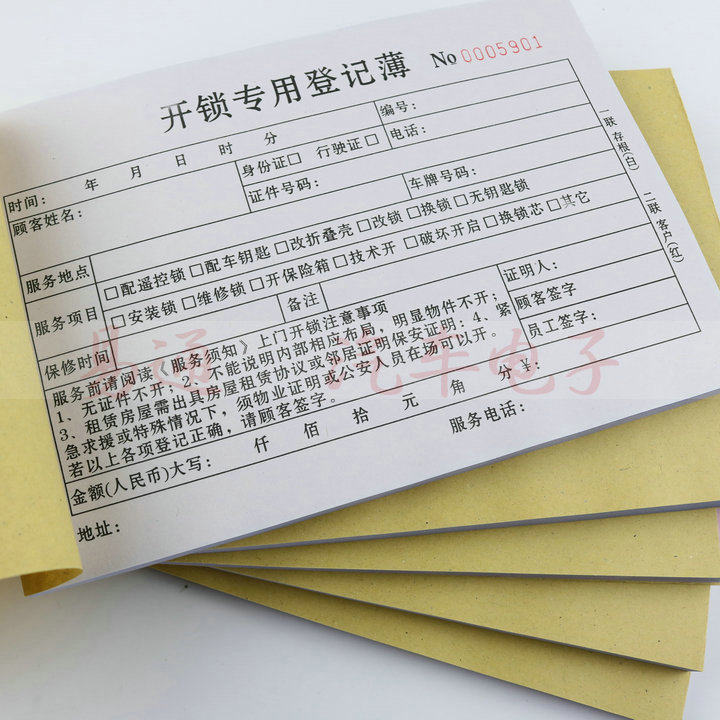 开锁专用登记薄
No 0005901
时间： 年 月 日 时 分
身份证□ 行驶证□
编号：
顾客姓名：
证件号码：
电话：
车牌号码：
服务地点
服务项目
□配遥控锁□配车钥匙□改折叠壳□改锁□换锁□无钥匙锁
□安装锁□维修锁□开保险箱□技术开□破坏开启□换锁芯□其它
保修时间
备注
证明人：
服务前请阅读《服务须知》上门开锁注意事项
1、无证件不开；2、不能说明内部相应布局，明显物件不开；
3、租赁房屋需出具房屋租赁协议或邻居证明保安证明；4、紧
急求援或特殊情况下，须物业证明或公安人员在场可以开。
若以上各项登记正确，请顾客签字。
顾客签字
员工签字：
金额(人民币)大写： 仟 佰 拾 元 角 分 ¥：
地址：
服务电话：
一联存根(白)
二联客户(红)
易通 汽车电子